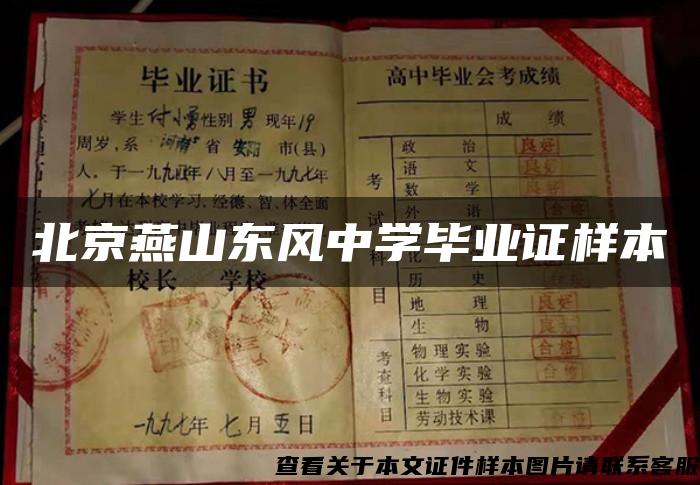 毕业证书
学生付小勇性别男现年19
周岁,系河南省安阳市(县)
人,于一九九四年八月至一九九七年
七月在本校学习,经德、智、体全面
北京燕山东风中学毕业证样本
校长 学校
一九九七年七月五日
高中毕业会考成绩
成绩
考试科目
政治 良好
语文 良好
数学 良好
外语 合格
历史 良好
地理 良好
生物 良好
考查科目
物理实验 合格
化学实验 合格
生物实验
劳动技术课 合格
查看关于本文证件样本图片请联系客服